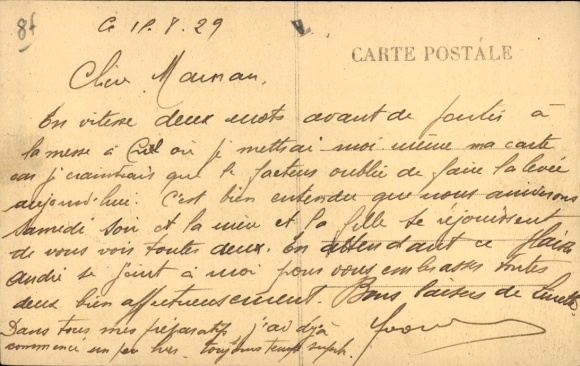 8f
Ce 18.8.29
CARTE POSTALE
Chère Maman,
En vitesse deux mots avant de partir à
la messe à où je mettrai moi même ma carte
car je craindrais que le facteur oublie de faire la levée
aujourd'hui. C'est bien entendu que nous arriverons
samedi soir et la mère et la fille se réjouissent
de vous voir toutes deux. En attendant ce plaisir
André se joint à moi pour vous embrasser toutes
deux bien affectueusement. Bons baisers de
Dans tous mes préparatifs j'ai déjà
commencé un peu hier. toujours temps